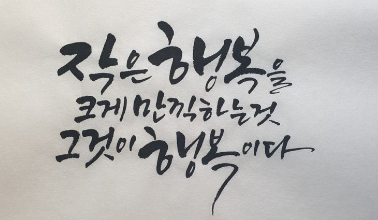 작은 행복을
크게 만끽하는것
그것이 행복이다